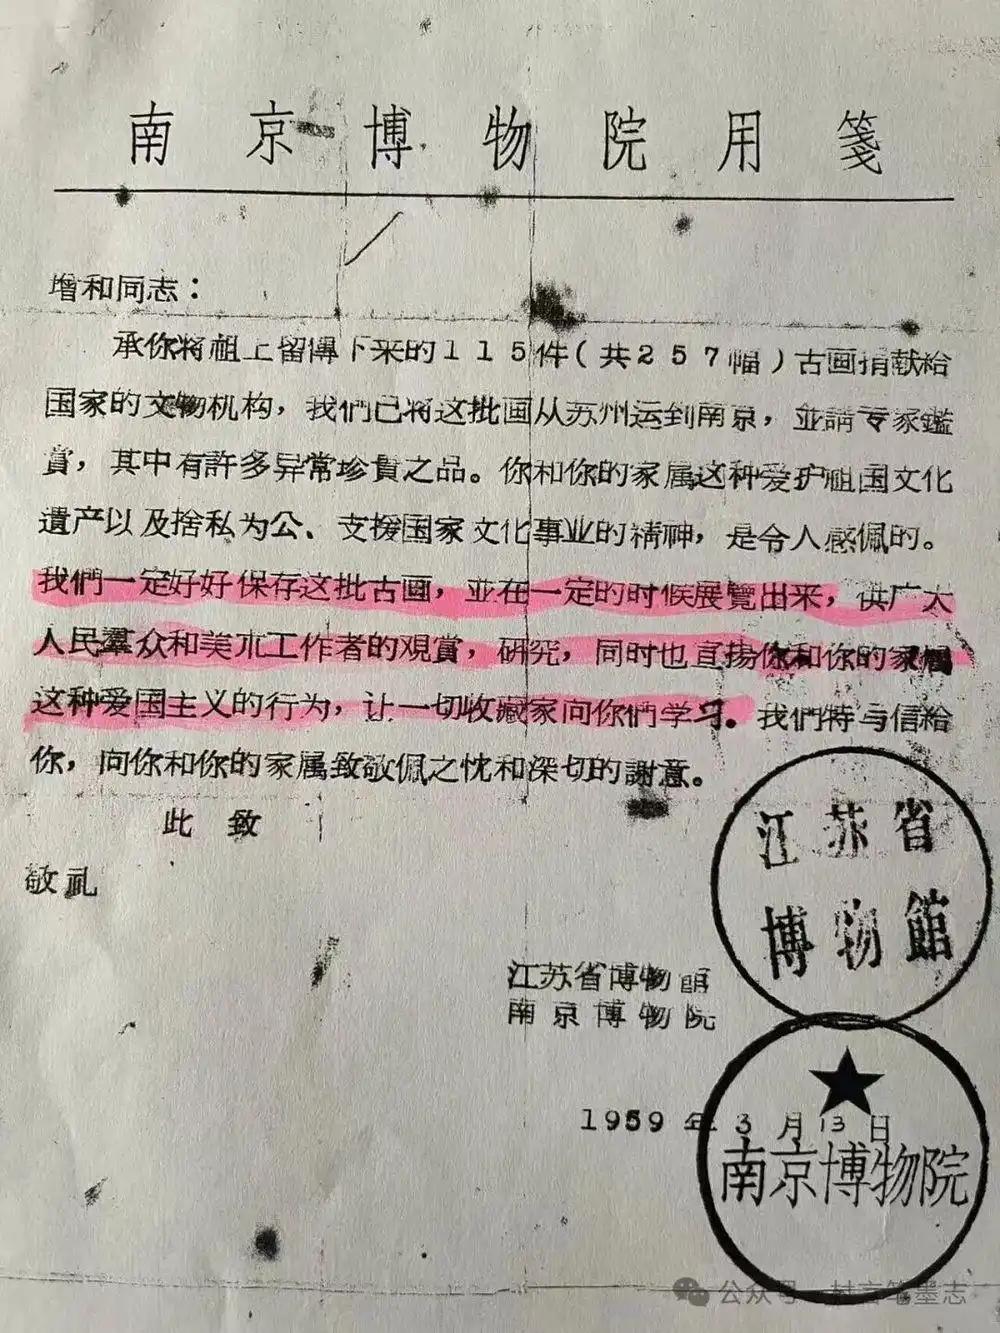 南京博物院用箋
增和同志：
承你将祖上留傳下来的115件（共257幅）古画捐献给
国家的文物机构，我們已将这批画从苏州运到南京，並請专家鑑
賞，其中有許多异常珍貴之品。你和你的家属这种爱护祖国文化
遺产以及捨私为公、支援国家文化事业的精神，是令人感佩的。
我們一定好好保存这批古画，並在一定的时候展覽出来，供广大
人民羣众和美朮工作者的观賞，研究，同时也直揚你和你的家属
这种爱国主义的行为，让一切收藏家向你們学习。我們特与信給
你，向你和你的家属致敬佩之忱和深切的謝意。
此致
敬礼
江苏省
博物館
江苏省博物館
南京博物院
1959年3月13日
南京博物院
公众号 村言笔墨志